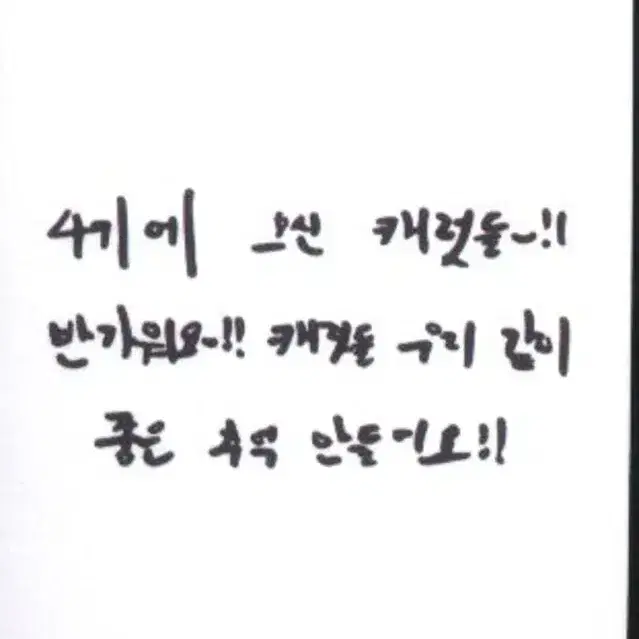 4기에 오신 캐럿들~!!
반가워요~!! 캐럿들 우리 같이
좋은 추억 만들어요!!